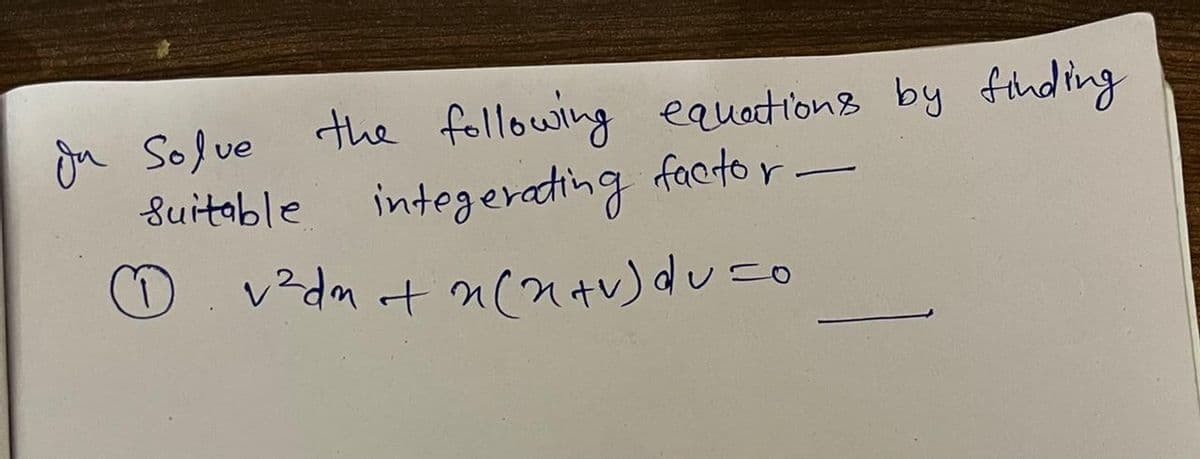 Qn Solve the following equations by finding
suitable integerating factor —
① . v²dx + x(x+v)dv=0 —